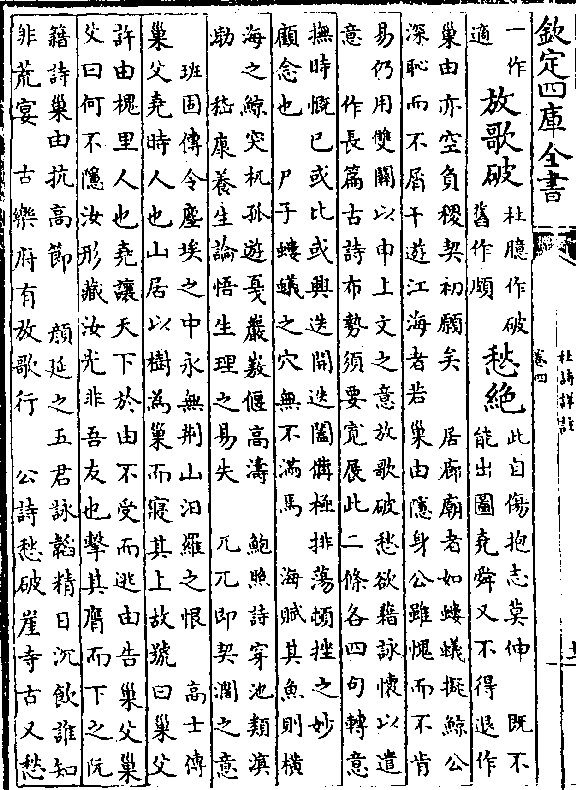 欽定四庫全書
杜詩詳註
卷四
一作
適
放歌破
杜臆作破
舊作頗
愁絶
此自傷抱志莫伸　既不
能出圖堯舜又不得退作
巢由亦空負稷契初願矣　居廊廟者如螻蟻擬鯨公
深恥而不屑干遊江海者若　巢由隱身公雖愧而不肯
易仍用雙關以申上文之意放歌破愁欲藉詠懷以遣
意　作長篇古詩布勢須要寛展此二條各四句轉意
撫時慨已或比或興迭開迭闔備極排蕩頓挫之妙
顧念也　尸子螻蟻之穴無不滿焉　海賦其魚則横
海之鯨突杌孤遊戛巖嶅偃高濤　鮑照詩穿池類溟
渤　嵇康養生論悟生理之易失　兀兀即契濶之意
班固傳令塵埃之中永無荆山汨羅之恨　高士傳
巢父堯時人也山居以樹為巢而寢其上故號曰巢父
許由槐里人也堯讓天下於由不受而逃由告巢父巢
父曰何不隱汝形藏汝光非吾友也擊其膺而下之阮
籍詩巢由抗高節　顔延之五君詠韜精日沉飲誰知
非荒宴　古樂府有放歌行　公詩愁破崖寺古又愁